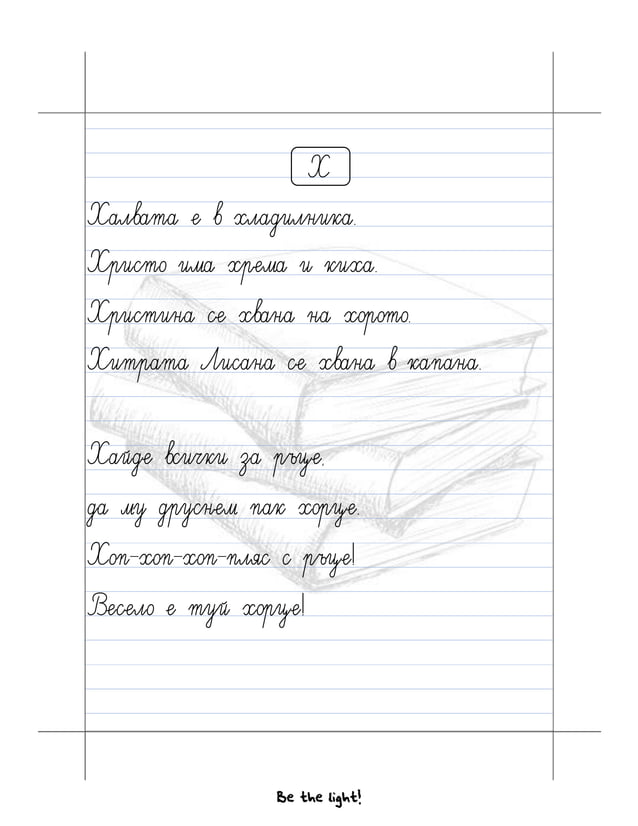 Х
Халвата е в хладилника.
Христо има хрема и киха.
Христина се хвана на хорото.
Хитрата Лисана се хвана в капана.
Хайде всички за ръце,
да му друснем пак хорце.
Хоп-хоп-хоп-пляс с ръце!
Весело е туй хорце!
Be the light!